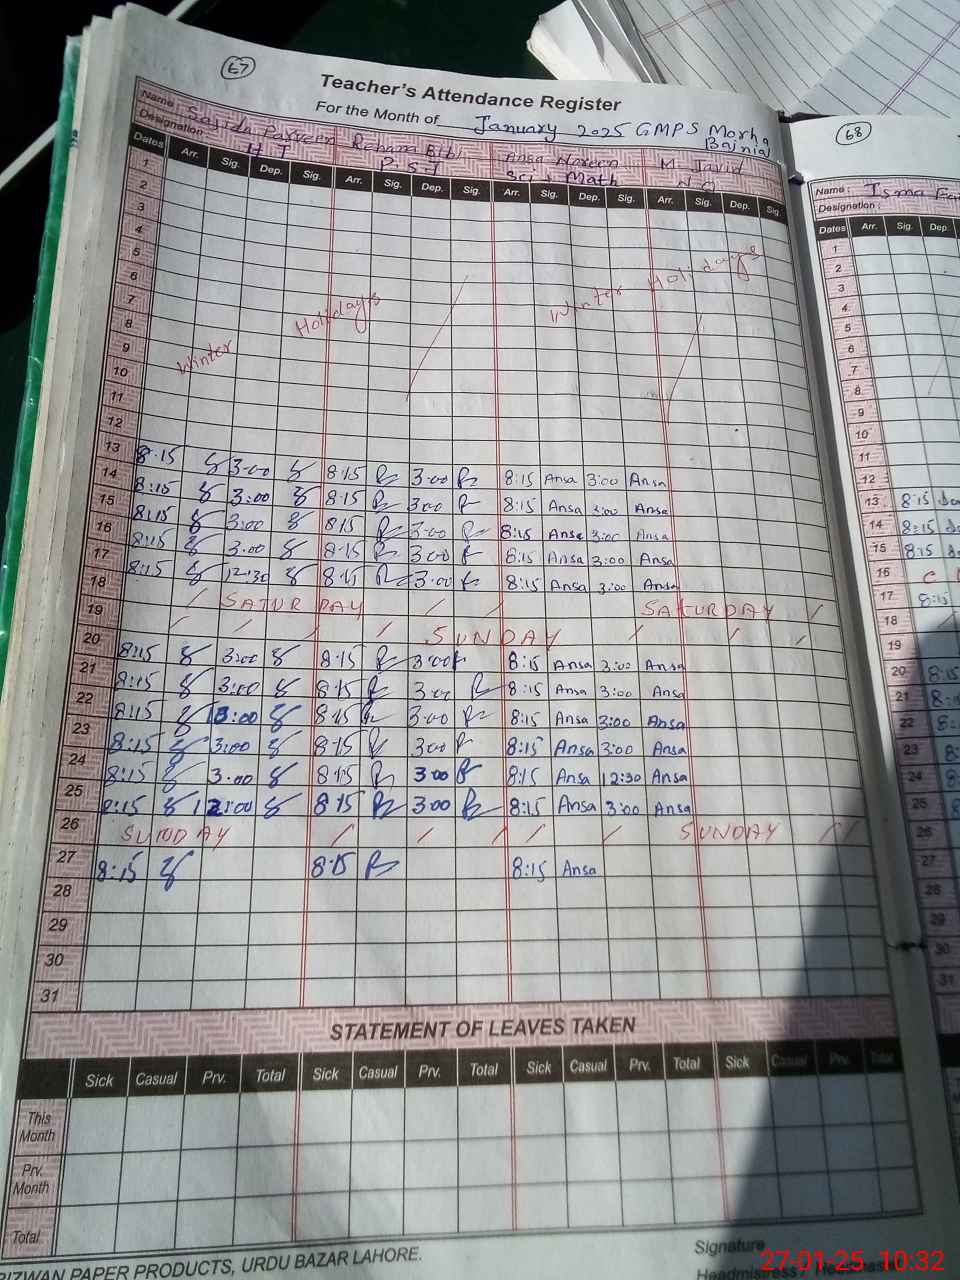 67
Teacher's Attendance Register
For the Month of January 2025 GMPS Morha Bajnial
Name : Sajida Parveen Rehana Bibi Ansa Noreen M. Javid
Designation : H T P.S.T Sci + Math N.Q
Dates Arr. Sig. Dep. Sig. Arr. Sig. Dep. Sig. Arr. Sig. Dep. Sig. Arr. Sig. Dep. Sig.
1
2
3
4
5
6
7
8
9
10
11
12
Winter Holidays Winter Holidays
13 8:15 3:00 8:15 3:00 8:15 Ansa 3:00 Ansa
14 8:15 3:00 8:15 3:00 8:15 Ansa 3:00 Ansa
15 8:15 3:00 8:15 3:00 8:15 Ansa 3:00 Ansa
16 8:15 3:00 8:15 3:00 8:15 Ansa 3:00 Ansa
17 8:15 12:30 8:15 3:00 8:15 Ansa 3:00 Ansa
18 SATURDAY SATURDAY
19 SUNDAY
20 8:15 3:00 8:15 3:00 8:15 Ansa 3:00 Ansa
21 8:15 3:00 8:15 3:00 8:15 Ansa 3:00 Ansa
22 8:15 3:00 8:15 3:00 8:15 Ansa 3:00 Ansa
23 8:15 3:00 8:15 3:00 8:15 Ansa 3:00 Ansa
24 8:15 3:00 8:15 3:00 8:15 Ansa 12:30 Ansa
25 8:15 12:00 8:15 3:00 8:15 Ansa 3:00 Ansa
26 SUNDAY SUNDAY
27 8:15 8:15 8:15 Ansa
28
29
30
31
STATEMENT OF LEAVES TAKEN
Sick Casual Prv. Total Sick Casual Prv. Total Sick Casual Prv. Total Sick Casual Prv. Total
This Month
Prv. Month
Total
RIZWAN PAPER PRODUCTS, URDU BAZAR LAHORE.
Signature
Headmistress /
68
Name : Isma
Designation :
Dates Arr. Sig. Dep.
1
2
3
4
5
6
7
8
9
10
11
12
13 8:15
14 8:15
15 8:15
16 C
17 8:15
18
19
20 8:15
21
22
23
24
25
26
27
28
29
30
31
27-01-25 10:32